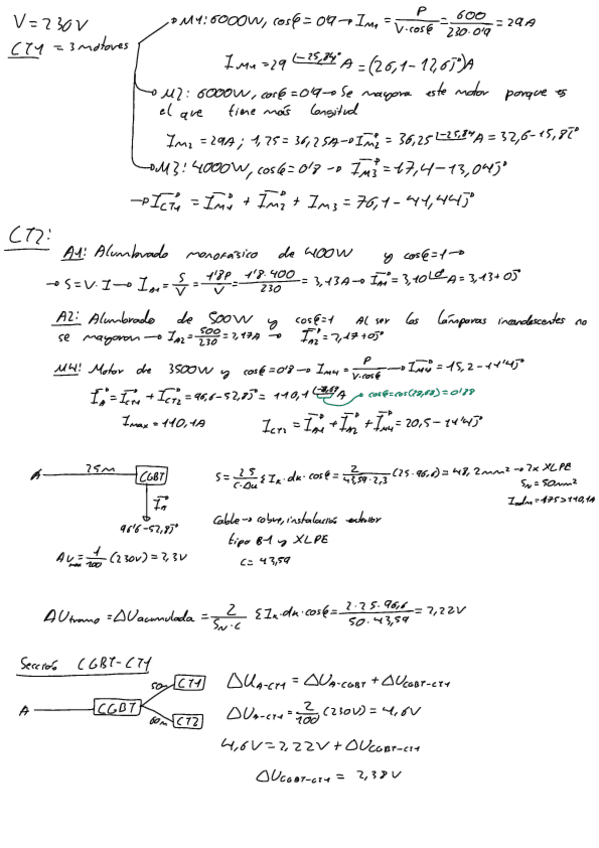 V = 230V
CT1 = 3 motores
M1: 6000W, cosϕ = 0'9 → I_M1 = P/(V·cosϕ) = 600/(230·0'9) = 29A
I_M1 = 29 ∠-25,84° A = (26,1-12,6j)A
M2: 6000W, cosϕ = 0'9 → Se mayora este motor porque es
el que tiene más longitud
I_M2 = 29A; 1,25 = 36,25A → I_M2 = 36,25 ∠-25,84 A = 32,6-15,8j
M3: 4000W, cosϕ = 0'8 → I_M3 = 17,4-13,04j
→ I_CT1 = I_M1 + I_M2 + I_M3 = 76,1-41,44j
CT2:
A1: Alumbrado monofásico de 400W y cosϕ=1 →
→ S=V·I → I_A1 = S/V = 1'8P/V = 1'8·400/230 = 3,13A → I_A1 = 3,10 ∠0 A = 3,13+0j
A2: Alumbrado de 500W y cosϕ=1 Al ser las lámparas incandescentes no
se mayoran → I_A2 = 500/230 = 2,17A → I_A2 = 2,17+0j
M4: Motor de 3500W y cosϕ=0'8 → I_M4 = P/(V·cosϕ) → I_M4 = 15,2-11'4j
I_A = I_CT1 + I_CT2 = 96,6-52,8j = 110,1 A → cosϕ=cos(28,68)=0'88
Imax = 110,1A I_CT2 = I_A1 + I_A2 + I_M4 = 20,5-11'4j
A 25m CGBT S = 2·S/(C·Δu) Σ I_k·dk·cosϕ = 2/(43,59·2,3) (25·96,6) = 48,2mm² → 2x XLPE
S_N = 50mm²
I_A I_adm = 175>110,1A
96'6-52,8j Cable → cobre, instalación exterior
tipo B1 y XLPE
ΔU max = 1/100 (230V) = 2,3V C = 43,59
ΔU tramo = ΔU acumulada = 2/(S_N·C) Σ I_k·dk·cosϕ = 2·25·96,6/(50·43,59) = 2,22V
Sección CGBT-CT1
50m CT1 ΔU_A-CT1 = ΔU_A-CGBT + ΔU_CGBT-CT1
A CGBT
60m CT2 ΔU_A-CT1 = 2/100 (230V) = 4,6V
4,6V = 2,22V + ΔU_CGBT-CT1
ΔU_CGBT-CT1 = 2,38V